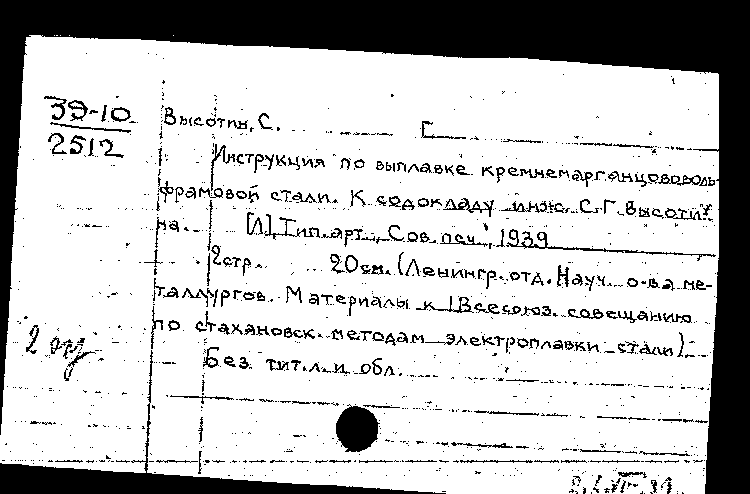 39-10
2512
Высотин, С. Г.
Инструкция по выплавке кремнемарганцововоль-
фрамовой стали. К содокладу инж. С.Г. Высоти-
на. [Л], Тип. арт. "Сов. печ.", 1939
2 стр. 20 см. (Ленингр. отд. Науч. о-ва ме-
таллургов. Материалы к I Всесоюз. совещанию
по стахановск. методам электроплавки стали).
Без тит. л. и обл.
2 экз.